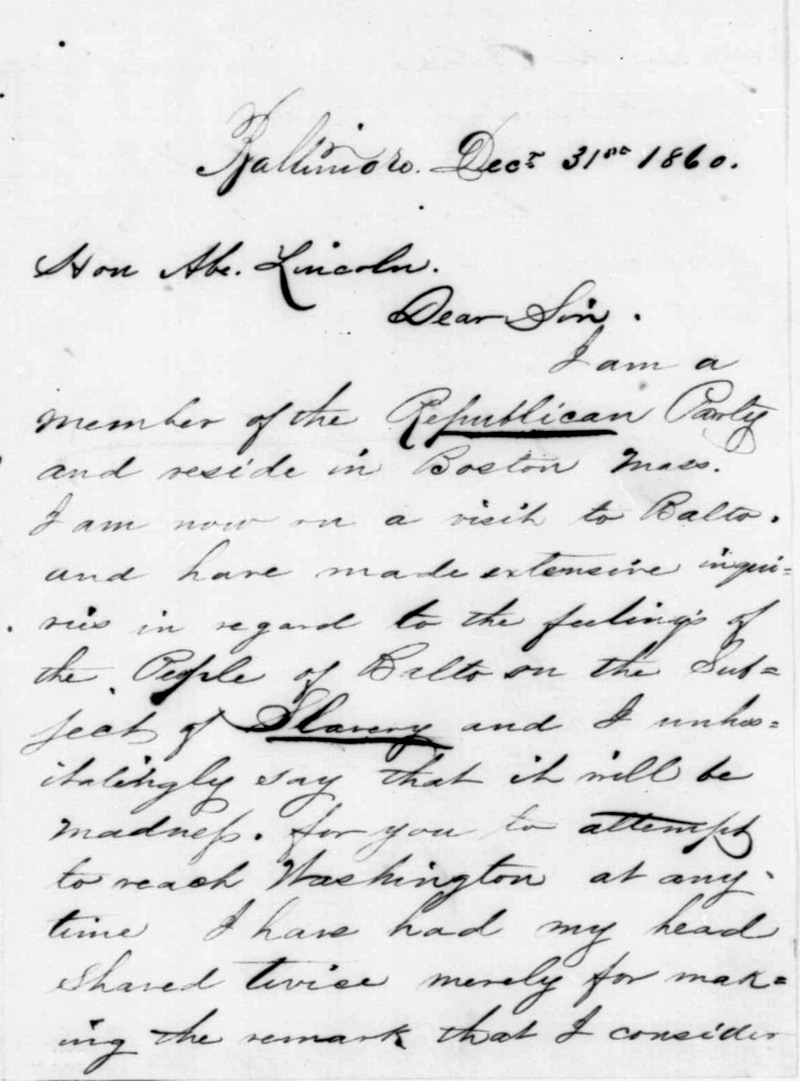 Baltimore. Decr 31st 1860.
Hon Abe. Lincoln.
Dear Sir.
I am a
member of the Republican Party
and reside in Boston Mass.
I am now on a visit to Balto.
and have made extensive inqui=
ries in regard to the feelings of
the People of Balto on the Sub=
ject of Slavery and I unhes=
itatingly say that it will be
madness. for you to attempt
to reach Washington at any
time I have had my head
shaved twice merely for mak=
ing the remark that I consider